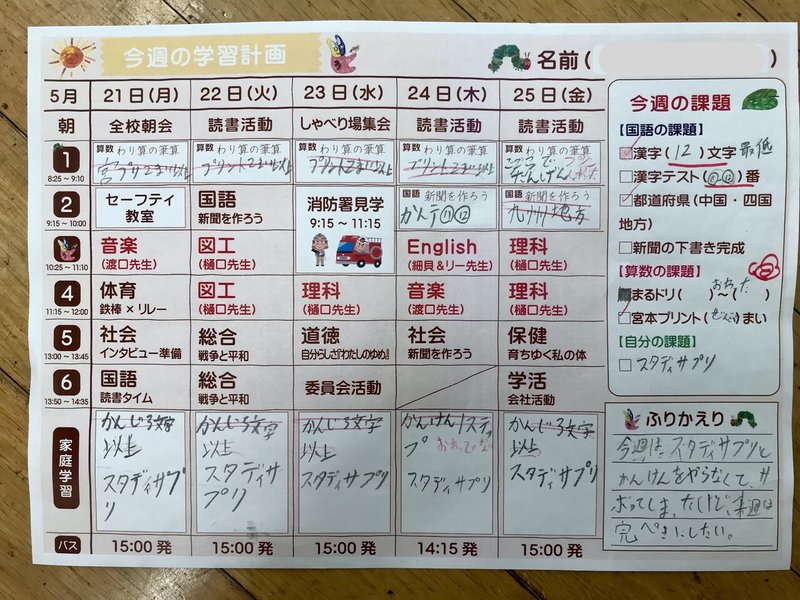 今週の学習計画
名前( )
5月 21日(月) 22日(火) 23日(水) 24日(木) 25日(金)
朝 全校朝会 読書活動 しゃべり場集会 読書活動 読書活動
1 8:25～9:10
算数 わり算の筆算
宮プリ2まい以上
算数 わり算の筆算
プリント2まい以上
算数 わり算の筆算
プリント2まい以上
算数 わり算の筆算
プリント2まい以上
算数 わり算の筆算
2 9:15～10:00
セーフティ
教室
国語
新聞を作ろう
消防署見学
9:15～11:15
国語 新聞を作ろう
かんテ⑪⑫
国語 新聞を作ろう
九州地方
10:25～11:10
音楽
(渡口先生)
図工
(樋口先生)
English
(細貝&リー先生)
理科
(樋口先生)
4 11:15～12:00
体育
鉄棒×リレー
図工
(樋口先生)
理科
(樋口先生)
音楽
(渡口先生)
理科
(樋口先生)
5 13:00～13:45
社会
インタビュー準備
総合
戦争と平和
道徳
自分らしさ『わたしのゆめ』
社会
新聞を作ろう
保健
育ちゆく私の体
6 13:50～14:35
国語
読書タイム
総合
戦争と平和
委員会活動
学活
会社活動
家庭学習
かんじ3文字
以上
スタディサプ
リ
かんじ3文字
以上
スタディサ
プリ
かんじ3文字
以上
スタディサプリ
かんけん1ステッ
プ
スタディサプリ
かんじ3文字
以上
スタディサプリ
バス 15:00発 15:00発 15:00発 14:15発 15:00発
今週の課題
【国語の課題】
漢字(12)文字 最低
漢字テスト(⑪⑫)番
都道府県(中国・四国
地方)
新聞の下書き完成
【算数の課題】
まるドリ( )～( )
おわった
宮本プリント( )まい
【自分の課題】
スタディサプリ
ふりかえり
今週は、スタディサプリと
かんけんをやらなくて、サ
ボってしまったけど、来週は
完ぺきにしたい。